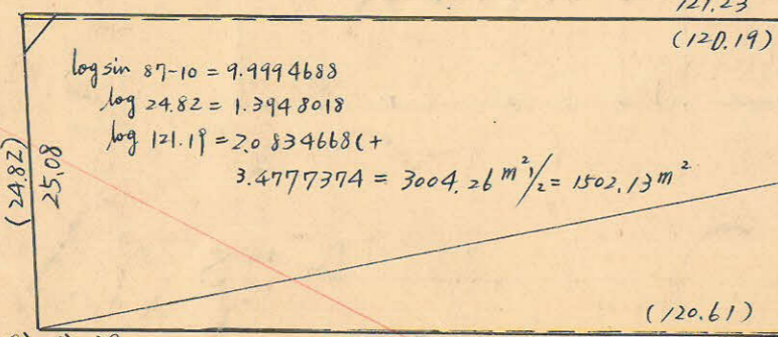 121.23
(120.19)
log sin 87-10 = 9.9994688
log 24.82 = 1.3948018
log 121.19 = 2.0834668(+
3.4777374 = 3004.26 m²/2 = 1502.13 m²
(24.82)
25.08
(120.61)